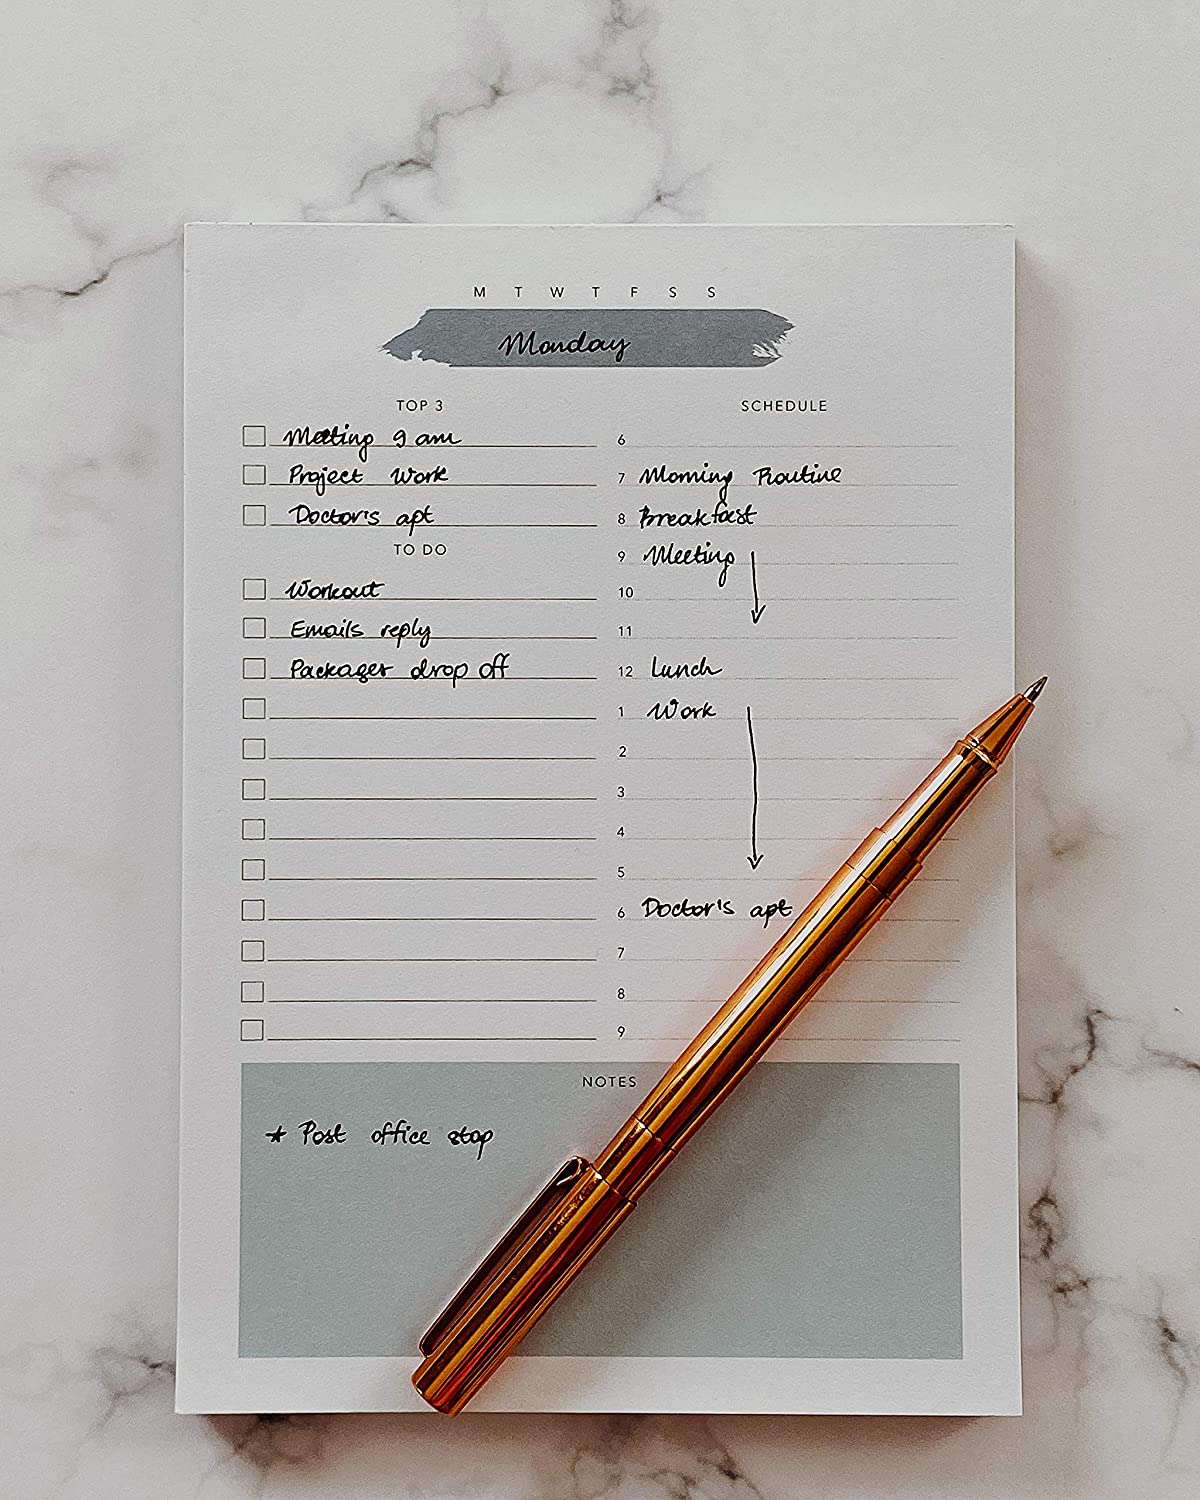 M T W T F S S
Monday
TOP 3
Meeting 9 am
Project Work
Doctor's apt
TO DO
Workout
Emails reply
Packages drop off
SCHEDULE
6
7 Morning Routine
8 Breakfast
9 Meeting
10
11
12 Lunch
1 Work
2
3
4
5
6 Doctor's apt
7
8
9
NOTES
* Post office stop